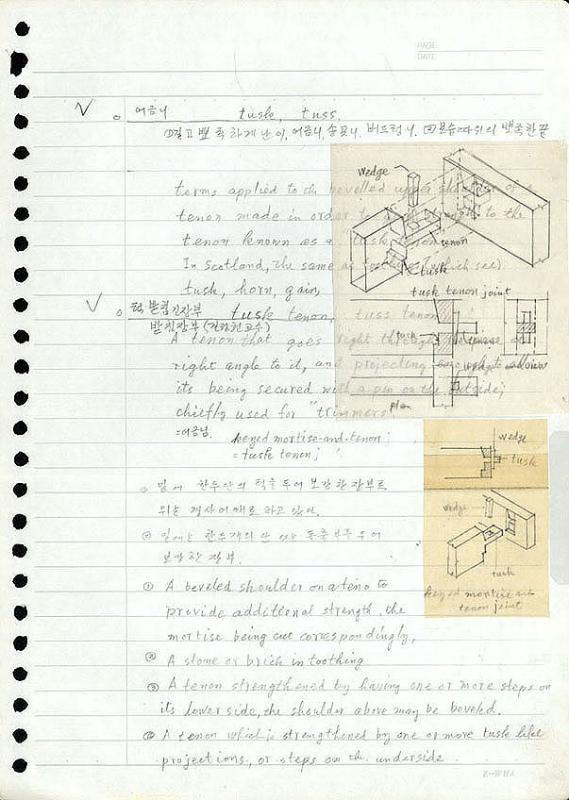 PAGE
DATE
어금니 tusk, tuss.
①길고 뾰족하게 난 이, 어금니, 송곳니, 버드렁니, ②보습따위의 뾰족한 끝
terms applied to the bevelled upper shoulder of a
tenon made in order to strength to the
tenon known as a "tusk tenon"
In Scotland, the same as (which see)
tusk, horn, gain,
턱받침장부 tusk tenon, tuss tenon
받침장부
A tenon that goes right through
right angle to it, and projecting enough to allow
its being secured with a pin on the outside;
chiefly used for "trimmers"
=어금님. keyed mortise-and-tenon;
= tusk tenon;
wedge
tenon
tusk
tusk tenon joint
tusk
wedge
plan
wedge
tusk
wedge
tusk
keyed mortise and
tenon joint
밑에 한두단의 턱을 두어 보강한 장부로
위는 경사어깨로 하고 있다.
밑에는 한두개의 단 또는 돌출부를 두어
보강한 장부.
① A beveled shoulder on a teno to
provide additional strength, the
mortise being cut correspondingly,
② A stone or brick in toothing
③ A tenon strengthened by having one or more steps on
its lower side, the shoulder above may be beveled.
A tenon which is strengthened by one or more tusk like
projections, or steps on the underside.